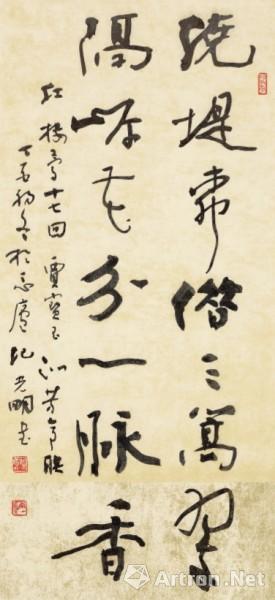 绕堤柳借三篙翠
隔岸花分一脉香
红楼梦十七回 贾宝玉 沁芳亭联
纪光明书
Artron.Net